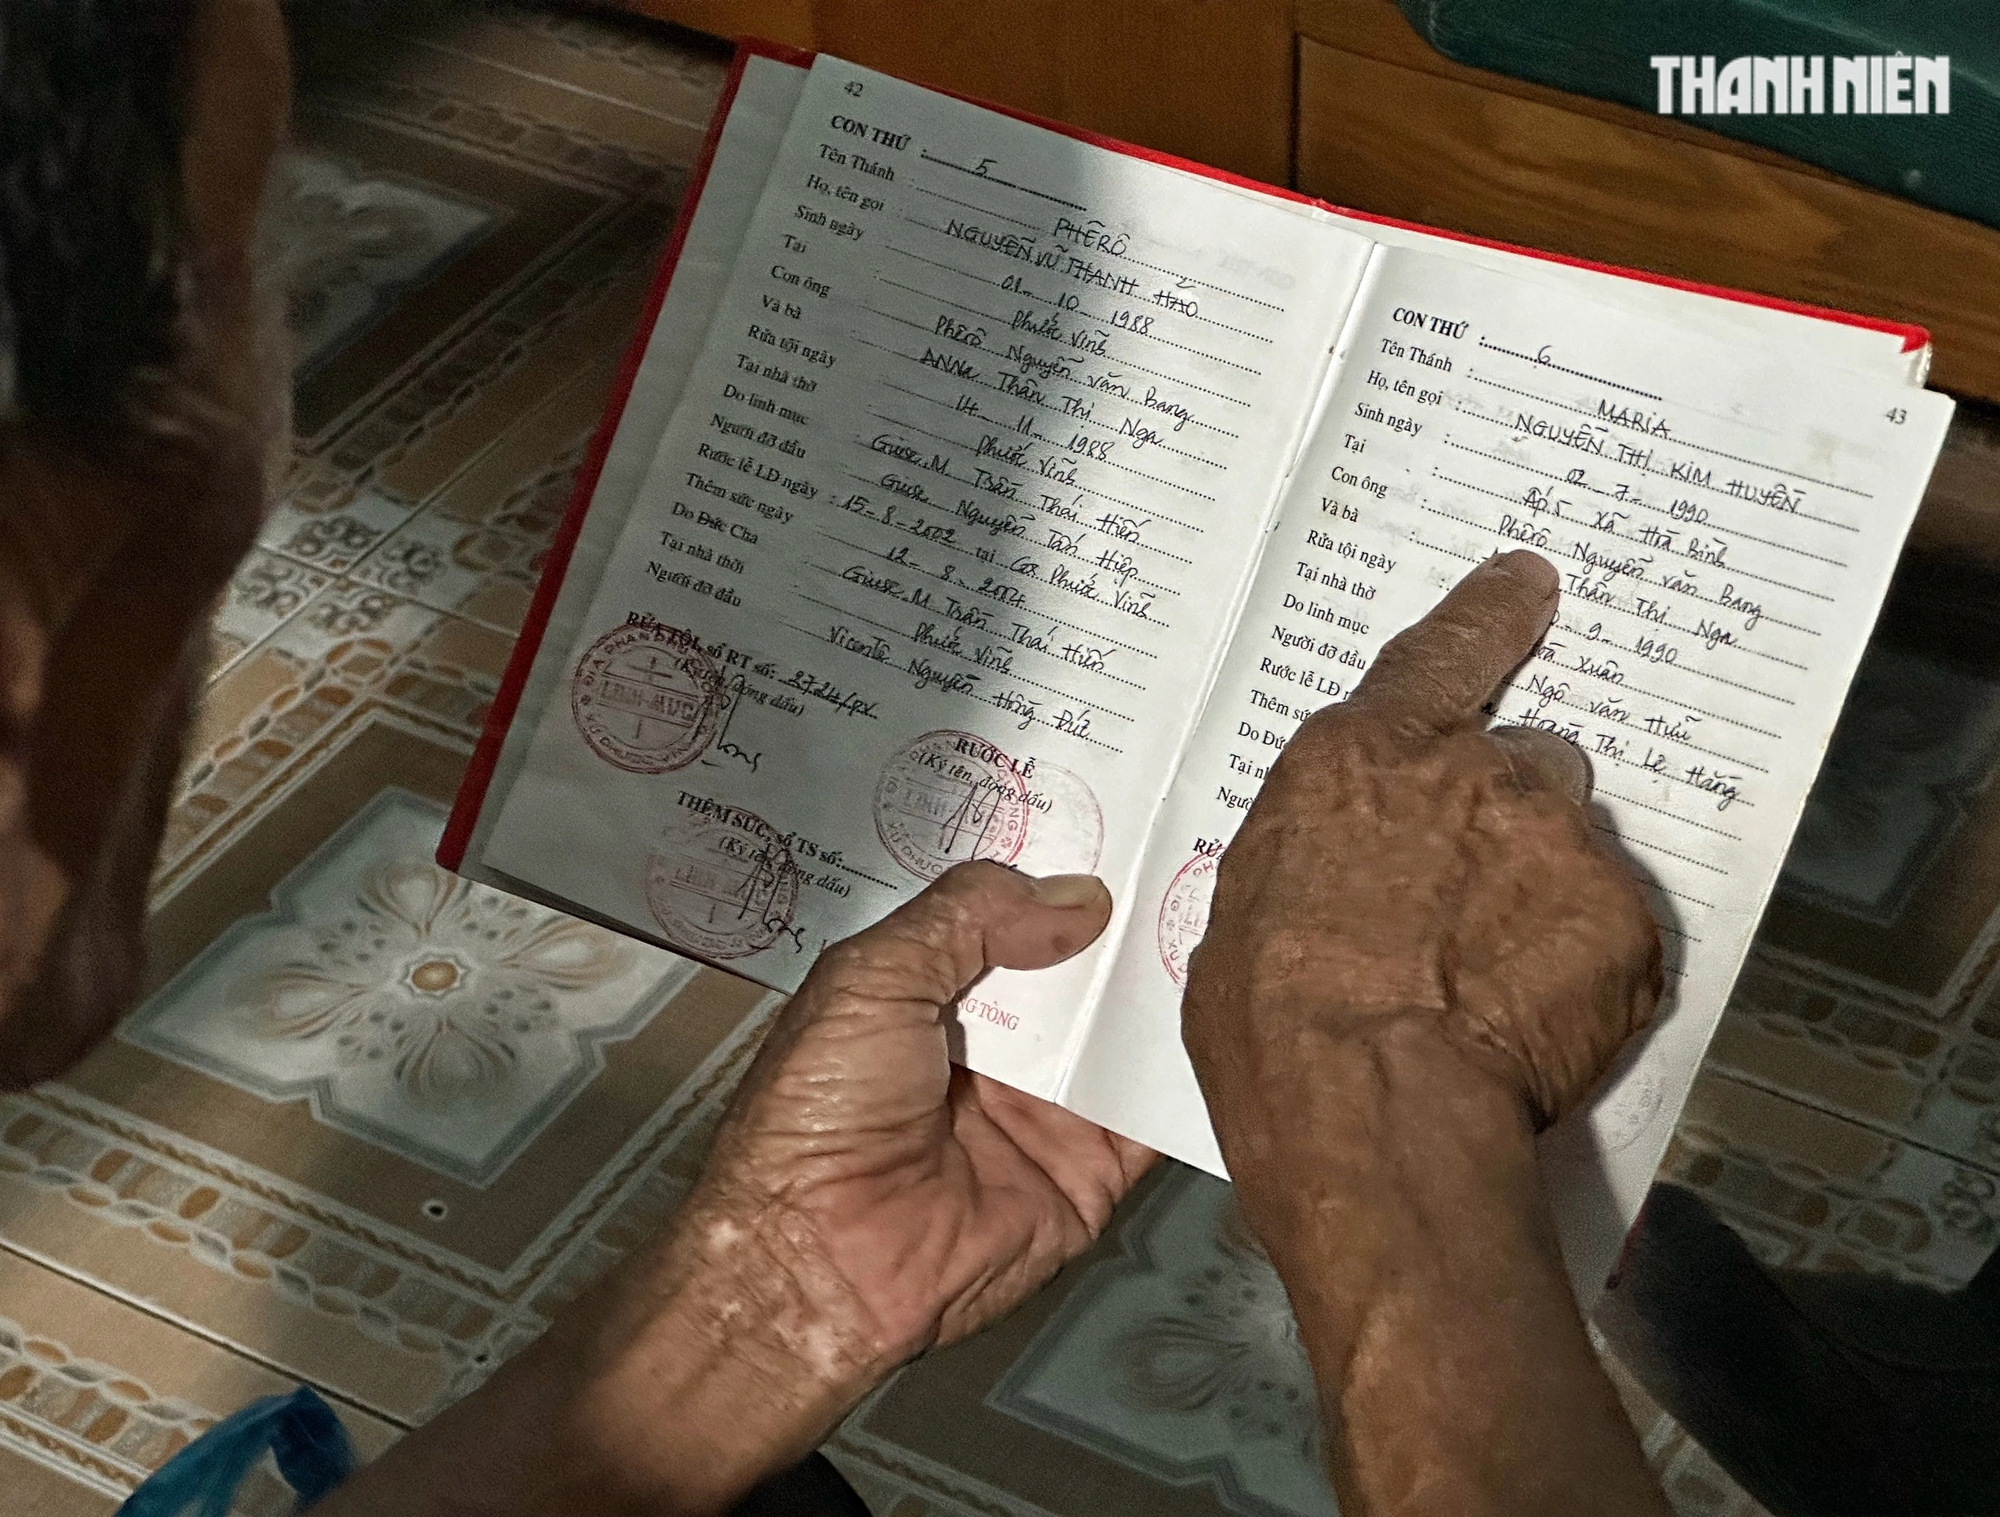 THANH NIÊN
42
CON THỨ : 5
Tên Thánh : PHÊRÔ
Họ, tên gọi : NGUYỄN VŨ THANH HẢO
Sinh ngày : 01 - 10 - 1988
Tại : Phước Vĩnh
Con ông : Phêrô Nguyễn Văn Bang
Và bà : ANNA Thân Thị Nga
Rửa tội ngày : 14 - 11 - 1988
Tại nhà thờ : Phước Vĩnh
Do linh mục : Giuse.M Trần Thái Hiến
Người đỡ đầu : Giuse Nguyễn Tấn Hiệp
Rước lễ LĐ ngày : 15-8-2002 tại Gx Phước Vĩnh
Thêm sức ngày : 12 - 8 - 2004
Do Đức Cha : Giuse.M Trần Thái Hiến
Tại nhà thời : Phước Vĩnh
Người đỡ đầu : Vicentê Nguyễn Hồng Đức
RỬA TỘI, số RT số:
(Ký tên, đóng dấu)
RƯỚC LỄ
(Ký tên, đóng dấu)
THÊM SỨC, số TS số:
(Ký tên, đóng dấu)
NG TÒNG
43
CON THỨ : 6
Tên Thánh : MARIA
Họ, tên gọi : NGUYỄN THỊ KIM HUYỀN
Sinh ngày : 02 - 7 - 1990
Tại : Ấp 5 Xã Hòa Bình
Con ông : Phêrô Nguyễn Văn Bang
Và bà : Thân Thị Nga
Rửa tội ngày 9 - 1990
Tại nhà thờ Xuân
Do linh mục Ngô Văn Hữu
Người đỡ đầu Hoàng Thị Lệ Hằng
Rước lễ LĐ
Thêm